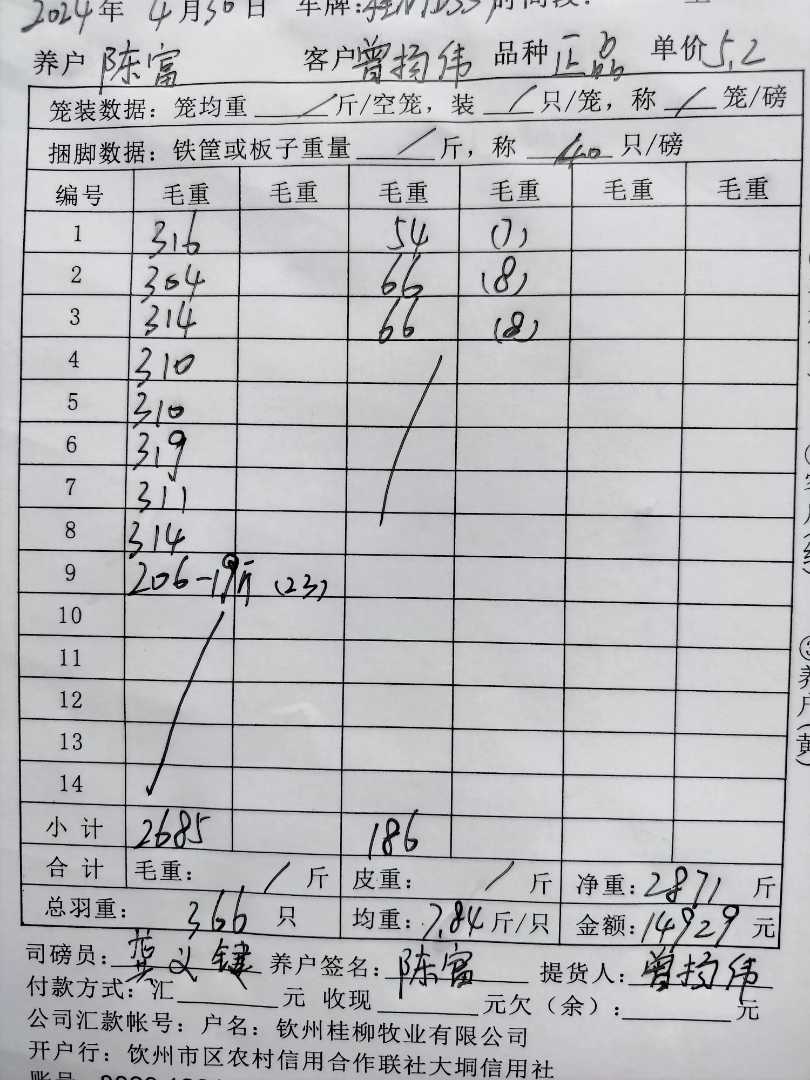 2024年 4月30日 车牌: 时间段:
养户 陈富 客户 曾扬伟 品种 正品 单价 5.2
笼装数据: 笼均重 / 斤/空笼, 装 / 只/笼, 称 / 笼/磅
捆脚数据: 铁筐或板子重量 / 斤, 称 40 只/磅
编号 毛重 毛重 毛重 毛重 毛重 毛重
1 316 54 (7)
2 304 66 (8)
3 314 66 (8)
4 310
5 310
6 319
7 311
8 314
9 206-19斤 (23)
10
11
12
13
14
小计 2685 186
合计 毛重: / 斤 皮重: / 斤 净重: 2871 斤
总羽重: 366 只 均重: 7.84 斤/只 金额: 14929 元
司磅员: 养户签名: 陈富 提货人: 曾扬伟
付款方式: 汇 元 收现 元欠(余): 元
公司汇款帐号: 户名: 钦州桂柳牧业有限公司
开户行: 钦州市区农村信用合作联社大垌信用社